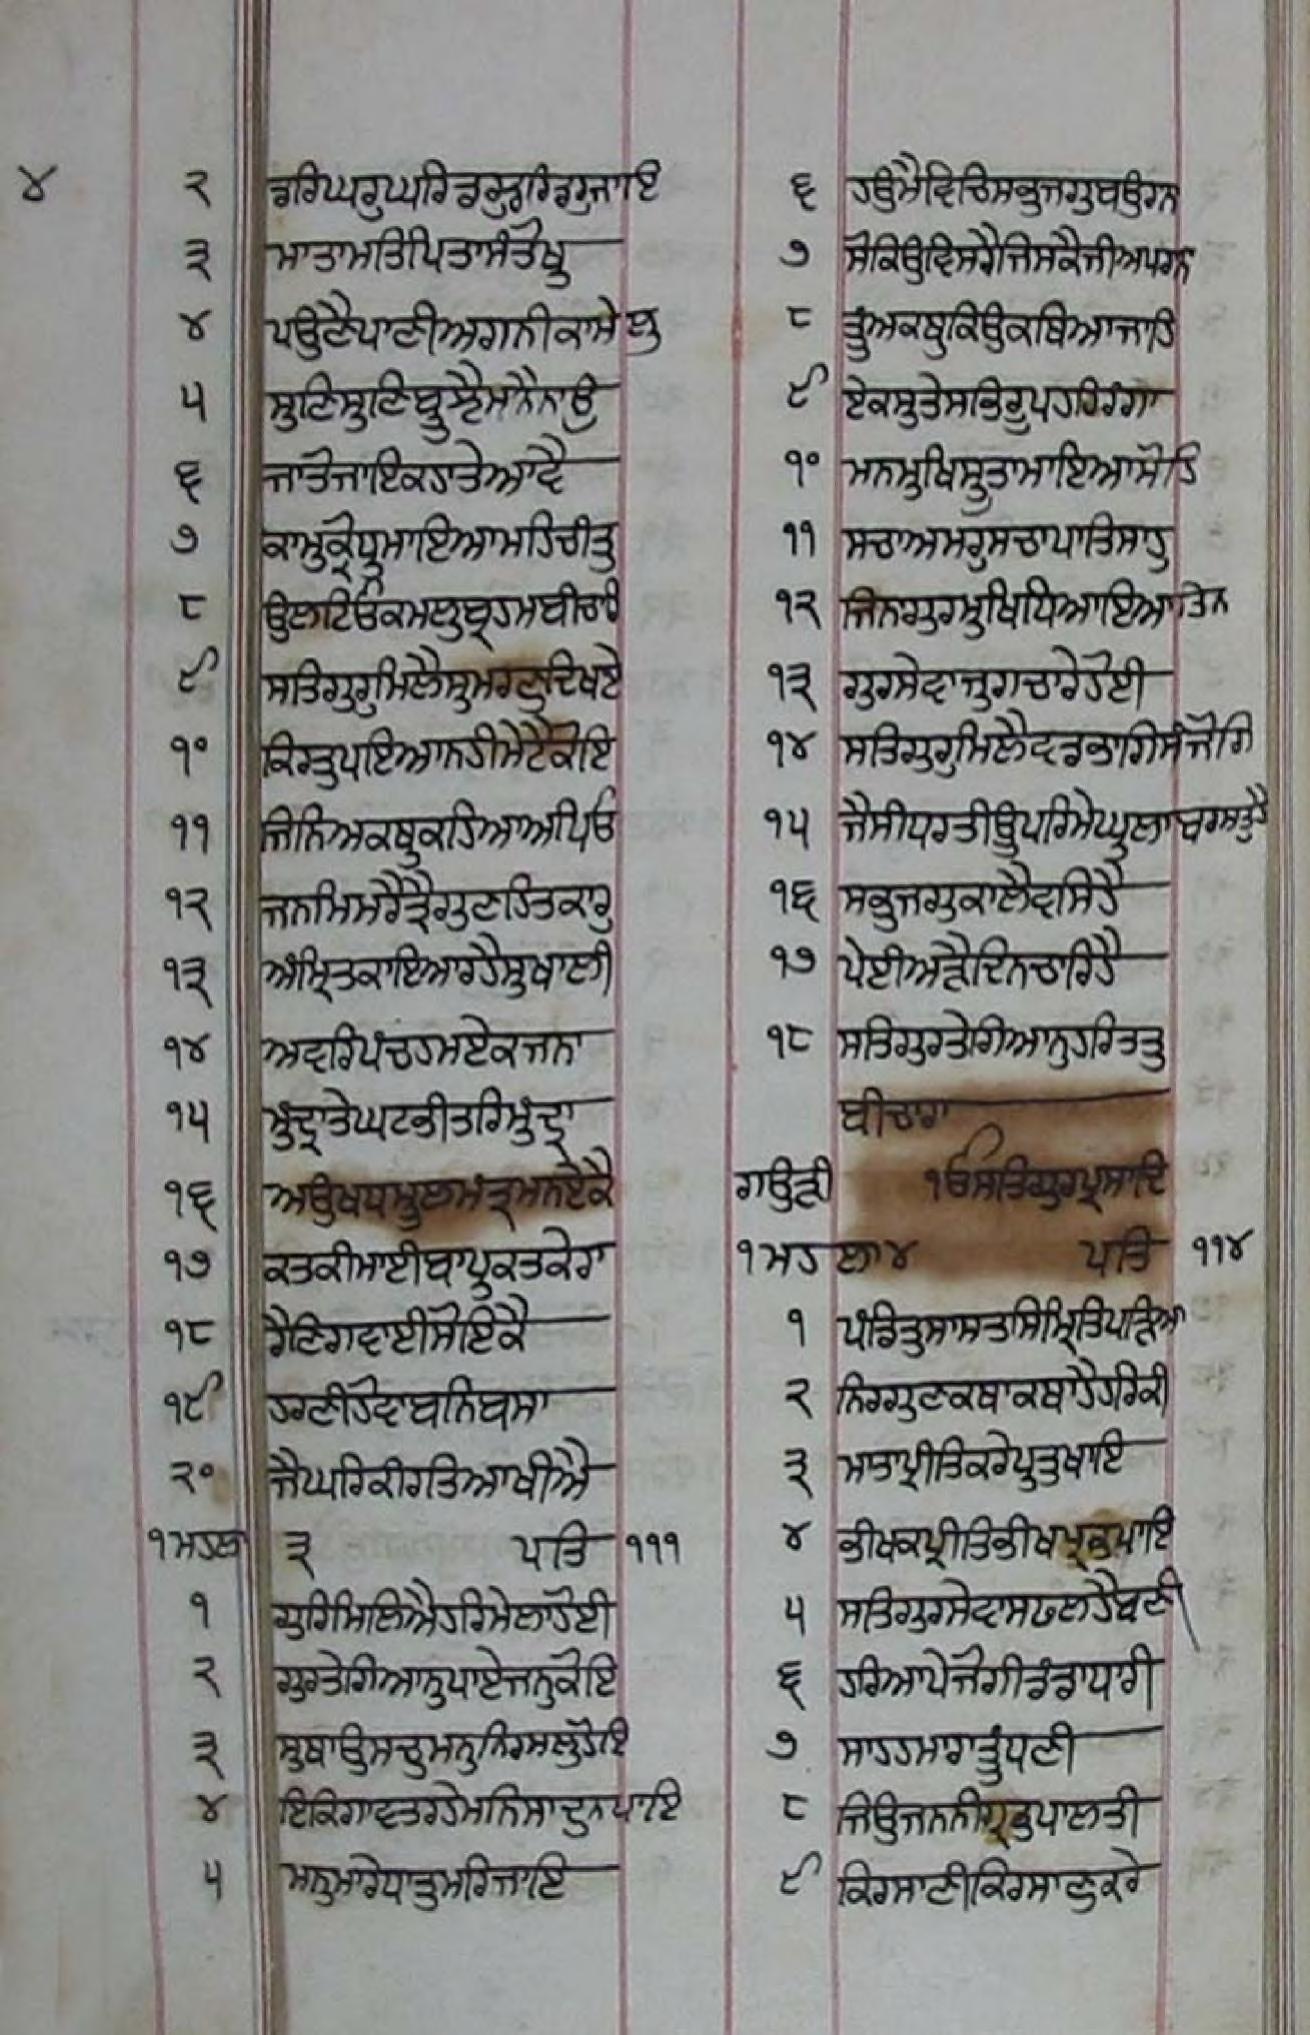 ੪
੨ ਡਰਿਘਰੁਘਰਿਡਰੁਡਰਿਡਰੁਜਾਇ
੩ ਮਾਤਾਮਤਿਪਿਤਾਸੰਤੋਖੁ
੪ ਪਉਣੈਪਾਣੀਅਗਨੀਕਾਮੇਲੁ
੫ ਸੁਣਿਸੁਣਿਬੂਝੈਮਾਨੈਨਾਉ
੬ ਜਾਤੋਜਾਇਕਹਾਤੇਆਵੈ
੭ ਕਾਮੁਕ੍ਰੋਧੁਮਾਇਆਮਹਿਚੀਤੁ
੮ ਉਲਟਿਓਕਮਲੁਬ੍ਰਹਮਬੀਚਾਰਿ
੯ ਸਤਿਗੁਰੁਮਿਲੈਸੁਮਰਣੁਦਿਖਾਏ
੧੦ ਕਿਰਤੁਪਇਆਨਹੀਮੇਟੈਕੋਇ
੧੧ ਜਿਨਿਅਕਥੁਕਹਿਆਅਪਿਓ
੧੨ ਜਨਮਿਮਰੈਤ੍ਰੈਗੁਣਹਿਤਕਾਰੁ
੧੩ ਅੰਮ੍ਰਿਤਕਾਇਆਰਹੈਸੁਖਾਲੀ
੧੪ ਅਵਰਿਪੰਚਹਮਏਕਜਨਾ
੧੫ ਮੁੰਦ੍ਰਾਤੇਘਟਭੀਤਰਿਮੁੰਦ੍ਰਾ
੧੬ ਅਉਖਧਮੰਤ੍ਰਮੂਲਮਨਏਕੈ
੧੭ ਕਤਕੀਮਾਈਬਾਪੁਕਤਕੇਰਾ
੧੮ ਰੈਣਿਗਵਾਈਸੋਇਕੈ
੧੯ ਹਰਣੀਹੋਵਾਬਨਿਬਸਾ
੨੦ ਜੈਘਰਿਕੀਰਤਿਆਖੀਐ
੧ ਮਹਲਾ ੩ ਪਤਿ ੧੧੧
੧ ਗੁਰਿਮਿਲਿਐਹਰਿਮੇਲਾਹੋਈ
੨ ਗੁਰਤੇਗਿਆਨੁਪਾਏਜਨੁਕੋਇ
੩ ਸੁਥਾਉਸਚੁਮਨੁਨਿਰਮਲੁਹੋਇ
੪ ਇਕਿਗਾਵਤਰਹੇਮਨਿਸਾਦੁਨਪਾਇ
੫ ਮਨੁਮਾਰੇਧਾਤੁਮਰਿਜਾਇ
੬ ਹਉਮੈਵਿਚਿਸਭੁਜਗੁਬਉਰਾਨਾ
੭ ਸੋਕਿਉਵਿਸਰੈਜਿਸਕੈਜੀਅਪਰਾਨਾ
੮ ਤੂੰਅਕਥੁਕਿਉਕਥਿਆਜਾਹਿ
੯ ਏਕਸੁਤੇਸਭਿਰੂਪਹਹਿਰੰਗਾ
੧੦ ਮਨਮੁਖਿਸੂਤਾਮਾਇਆਮੋਹਿ
੧੧ ਸਚਾਅਮਰੁਸਚਾਪਾਤਿਸਾਹੁ
੧੨ ਜਿਨਗੁਰਮੁਖਿਧਿਆਇਆਤਿਨ
੧੩ ਗੁਰਸੇਵਾਜੁਗਚਾਰੇਹੋਈ
੧੪ ਸਤਿਗੁਰੁਮਿਲੈਵਡਭਾਗਿਸੰਜੋਗਿ
੧੫ ਜੈਸੀਧਰਤੀਊਪਰਿਮੇਘੁਲਾਬਰਸਤੁਹੈ
੧੬ ਸਭੁਜਗੁਕਾਲੈਵਸਿਹੈ
੧੭ ਪੇਈਅੜੈਦਿਨਚਾਰਿਹੈ
੧੮ ਸਤਿਗੁਰਤੇਗਿਆਨੁਹਰਿਤਤੁ
ਬੀਚਾਰਾ
ਗਉੜੀ ੧ਓਸਤਿਗੁਰਪ੍ਰਸਾਦਿ
੧ ਮਹਲਾ ੪ ਪਤਿ ੧੧੪
੧ ਪੰਡਿਤੁਸਾਸਤਸਿਮ੍ਰਿਤਿਪੜਿਆ
੨ ਨਿਰਗੁਣਕਥਾਕਥਾਹੈਹਰਿਕੀ
੩ ਮਾਤਾਪ੍ਰੀਤਿਕਰੇਪੁਤੁਖਾਇ
੪ ਭੀਖਕਪ੍ਰੀਤਿਭੀਖਪ੍ਰਭਪਾਇ
੫ ਸਤਿਗੁਰਸੇਵਾਸਫਲਹੈਬਣੀ
੬ ਹਰਿਆਪੇਜੋਗੀਡੰਡਾਧਾਰੀ
੭ ਸਾਹਹਮਾਰਾਤੂੰਧਣੀ
੮ ਜਿਉਜਨਨੀਸੁਤੁਪਾਲਤੀ
੯ ਕਿਰਸਾਣੀਕਿਰਸਾਣੁਕਰੇ